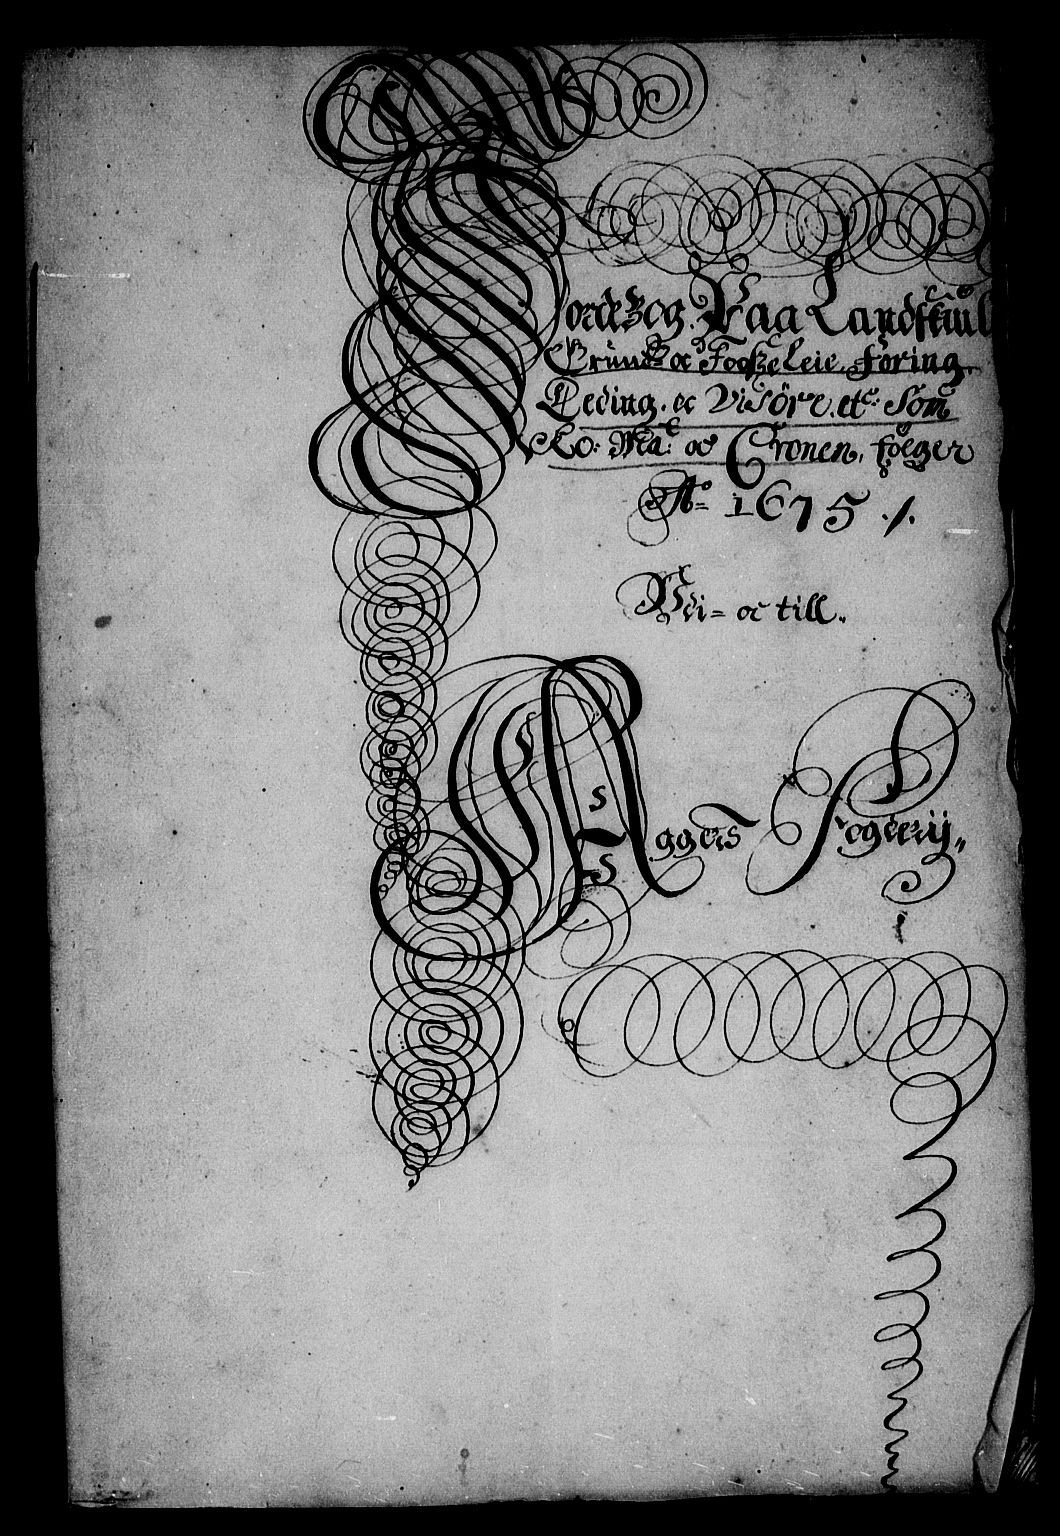 Jordebog. Paa Landskiul
Grund= oc Fooszeleie, Føring,
Leding. oc Visøre. etc: Som
Ko: Ma: oc Cronen, følger
Ao= 1675 ./.
Udi= oc till.
Aggers Fogderij,,